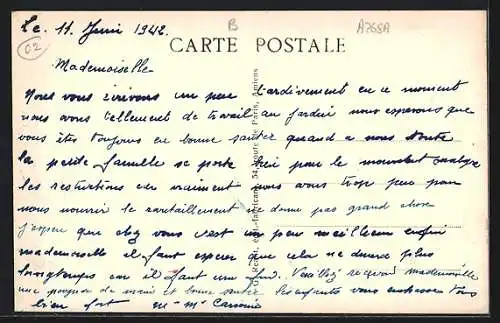 Le. 11 Juin 1942.
B
A768A
02
CARTE POSTALE
Mademoiselle
Nous vous écrivons un peu tardivement en ce moment
nous avons tellement de travail au jardin nous esperons que
vous êtes toujours en bonne santée quand a nous toute
la petite famille se porte bien pour le moment malgre
les restrictions car vraiment nous avons trop peu pour
nous nourrir le ravitaillement ne donne pas grand chose
j'espere que chez vous c'est un peu meilleur enfin
mademoiselle il faut esperer que cela ne durera plus
longtemps car il faut une fin. Veuillez recevoir mademoiselle
une poignée de main et bonne santée les enfants vous embrasse tous
bien fort Mr Mme
édit.-fabricant, 54, route de Paris, Amiens